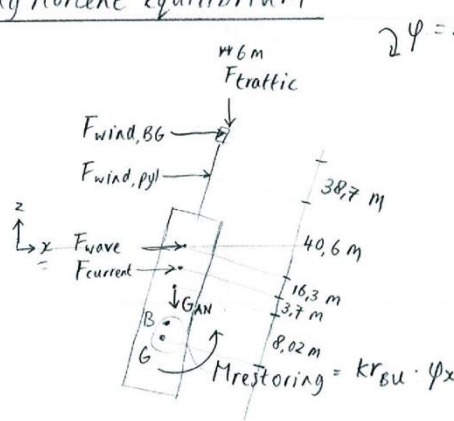 Moment equilibrium
φ =
6 m
Ftraffic
Fwind,BG
Fwind,pyl
38,7 m
z
x
Fwave
40,6 m
Fcurrent
16,3 m
GAN
3,7 m
B
8,02 m
G
Mrestoring = krBU · φx